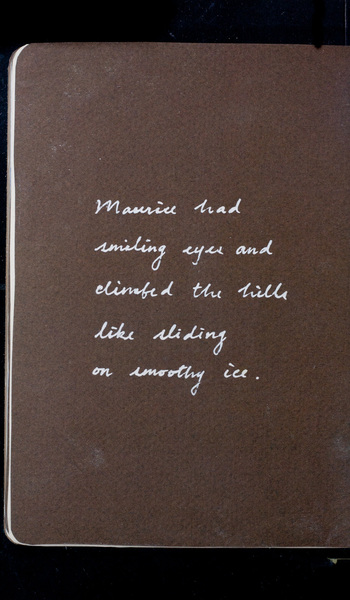 Maurice had
smiling eyes and
climbed the hills
like sliding
on smoothy ice.